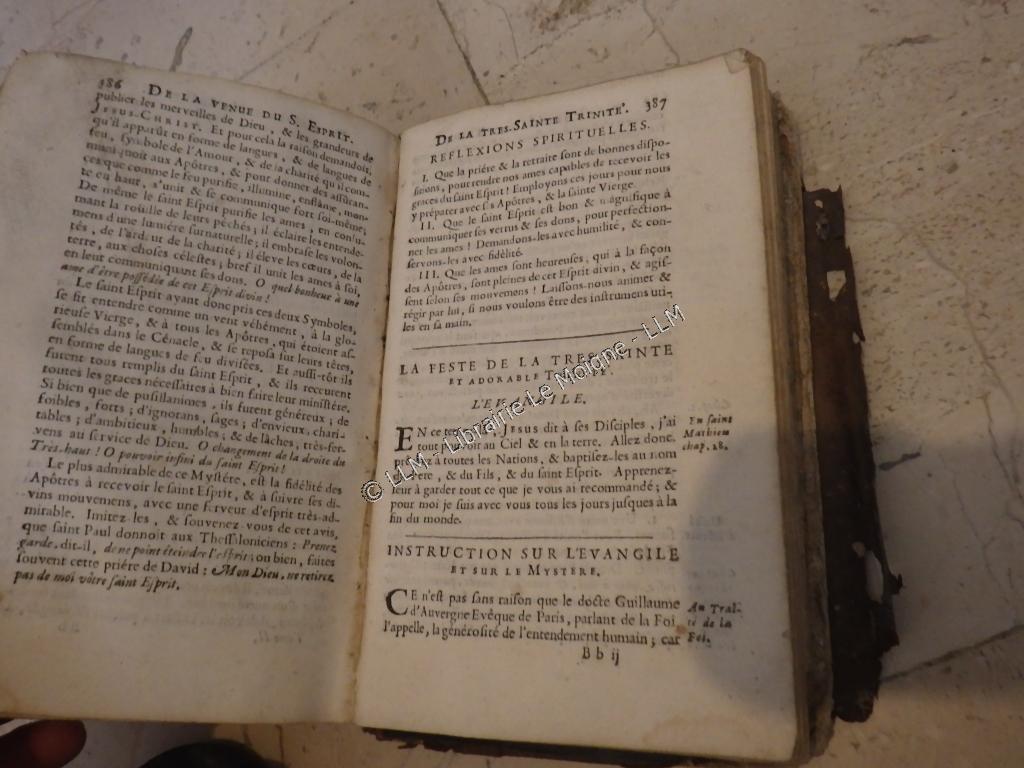 386 DE LA VENUE DU S. ESPRIT.
publier les merveilles de Dieu, & les grandeurs de
JESUS-CHRIST. Et pour cela la raison demandoit,
qu'il apparût en forme de langues, & de langues de
feu, symbole de l'Amour, & de la charité qu'il com-
muniquoit aux Apôtres, & pour donner des assuran-
ces que comme le feu purifie, illumine, enflâme, mon-
te en haut, s'unit & se communique fort soi-même;
De même le saint Esprit purifie les ames, en consu-
mant la roüille de leurs péchés; il éclaire les entende-
mens d'une lumiére surnaturelle; il embrase les volon-
tés, de l'ardeur de la charité; il éleve les cœurs, de la
terre, aux choses célestes; bref il unit les ames à soi,
en leur communiquant ses dons. O quel bonheur à une
ame d'être possédée de cet Esprit divin!
Le saint Esprit ayant donc pris ces deux Symboles,
se fit entendre comme un vent véhément, à la glo-
rieuse Vierge, & à tous les Apôtres, qui étoient as-
semblés dans le Cénacle, & se reposa sur leurs têtes,
en forme de langues de feu divisées. Et aussi-tôt ils
furent tous remplis du saint Esprit, & ils reçurent
toutes les graces nécessaires à bien faire leur ministére.
Si bien que de pusillanimes, ils furent généreux; de
foibles, forts; d'ignorans, sages; d'envieux, chari-
tables; d'ambitieux, humbles; & de lâches, très-fer-
vens au service de Dieu. O changement de la droite du
Très-haut! O pouvoir infini du saint Esprit!
Le plus admirable de ce Mystére, est la fidélité des
Apôtres à recevoir le saint Esprit, & à suivre ses di-
vins mouvemens, avec une ferveur d'esprit très-ad-
mirable. Imitez-les, & souvenez-vous de cet avis,
que saint Paul donnoit aux Thessaloniciens: Prenez
garde, dit-il, de ne point éteindre l'esprit; ou bien, faites
souvent cette priére de David: Mon Dieu, ne retirez
pas de moi vôtre saint Esprit.
DE LA TRES-SAINTE TRINITÉ. 387
REFLEXIONS SPIRITUELLES.
I. Que la priére & la retraite sont de bonnes dispo-
sitions, pour rendre nos ames capables de recevoir les
graces du saint Esprit! Employons ces jours pour nous
y préparer avec ses Apôtres, & la sainte Vierge.
II. Que le saint Esprit est bon & magnifique à
communiquer ses vertus & ses dons, pour perfection-
ner les ames! Demandons-les avec humilité, & con-
servons-les avec fidélité.
III. Que les ames sont heureuses, qui à la façon
des Apôtres, sont pleines de cet Esprit divin, & agis-
sent selon ses mouvemens! Laissons-nous animer &
régir par lui, si nous voulons être des instrumens uti-
les en sa main.
LA FESTE DE LA TRES-SAINTE
ET ADORABLE
L'EVANGILE.
EN ce JESUS dit à ses Disciples, j'ai
tout pouvoir au Ciel & en la terre. Allez donc
à toutes les Nations, & baptisez-les au nom
Pére, & du Fils, & du saint Esprit. Apprenez-
leur à garder tout ce que je vous ai recommandé; &
pour moi je suis avec vous tous les jours jusques à la
fin du monde.
En saint
Mathieu
chap. 28.
INSTRUCTION SUR L'EVANGILE
ET SUR LE MYSTERE.
CE n'est pas sans raison que le docte Guillaume
d'Auvergne Evêque de Paris, parlant de la Foi
l'appelle, la générosité de l'entendement humain; car
Au Trai-
té de la
Foi.
B b ij
© LLM - Librairie Le Moigne - LLM